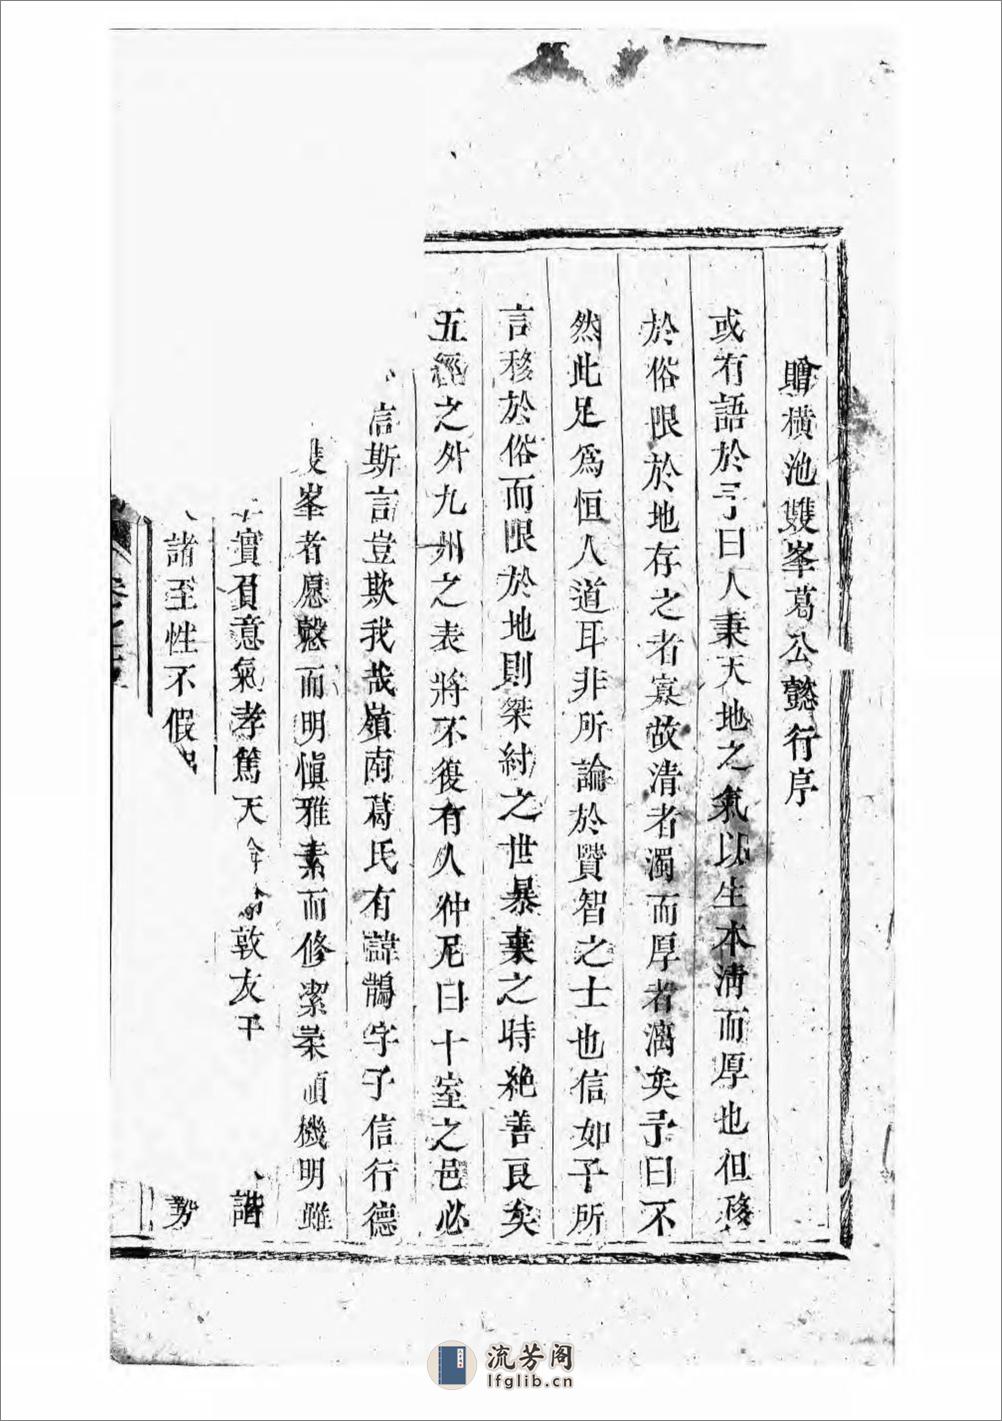 贈橫池雙峯葛公懿行序
或有語於予曰人秉天地之氣以生本清而厚也但移
於俗限於地存之者寡故清者濁而厚者漓矣予曰不
然此足為恒人道耳非所論於賢智之士也信如子所
言移於俗而限於地則桀紂之世暴棄之時絕善良矣
五經之外九州之表將不復有人仲尼曰十室之邑必
信斯言豈欺我哉嶺南葛氏有諱鵲字子信行德
雙峯者愿慤而明慎雅素而修潔業順機明雖
實負意氣孝篤天敦友于諧
諸至性不假
流芳阁
lfglib.cn